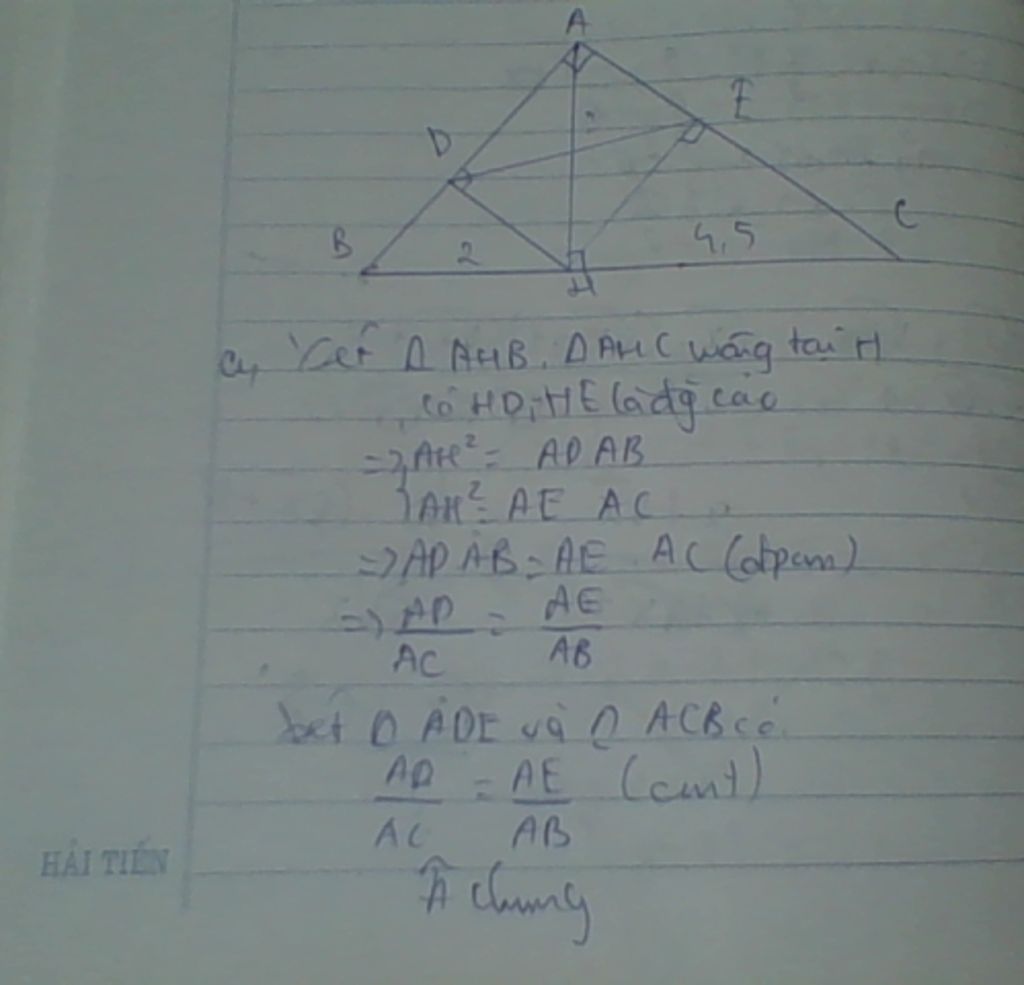 A
E
D
C
B
2
4,5
H
a, Xét Δ AHB, Δ AHC vuông tại H
có HD, HE là đg cao
=> AH² = AD AB
AH² = AE AC
=> AD AB = AE AC (đpcm)
=> AD/AC = AE/AB
Xét Δ ADE và Δ ACB có
AD/AC = AE/AB (cmt)
Â chung
HẢI TIẾN